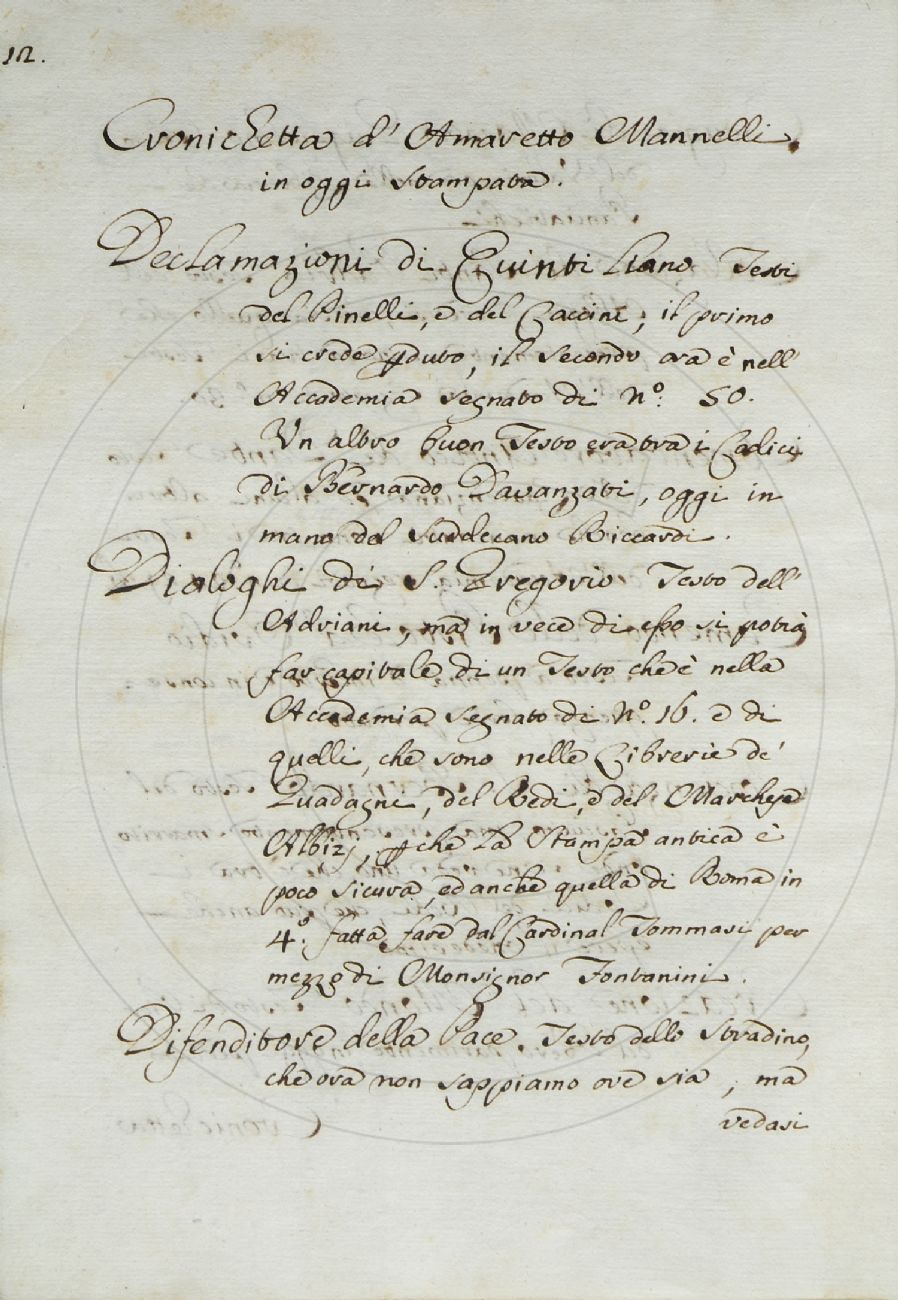 12.
Cronichetta d'Amaretto Mannelli
in oggi stampata.
Declamazioni di Quintiliano Testi
del Pinelli, e del Caccini; il primo
si crede ꝑduto, il secondo ora è nell'
Accademia segnato di Nº. 50.
Un altro buon Testo era tra i Codici
di Bernardo Davanzati, oggi in
mano del Suddecano Riccardi.
Dialoghi di S. Gregorio Testo dell'
Adriani, ma in vece di esso si potrà
far capitale di un Testo che è nella
Accademia segnato di Nº. 16. e di
quelli, che sono nelle Librerie de'
Guadagni, del Redi, e del Marchese
Albizj, ꝑche la Stampa antica è
poco sicura, ed anche quella di Roma in
4º. fatta fare dal Cardinal Tommasi per
mezzo di Monsignor Fontanini.
Difenditore della Pace. Testo dello Stradino,
che ora non sappiamo ove sia, ma
vedasi